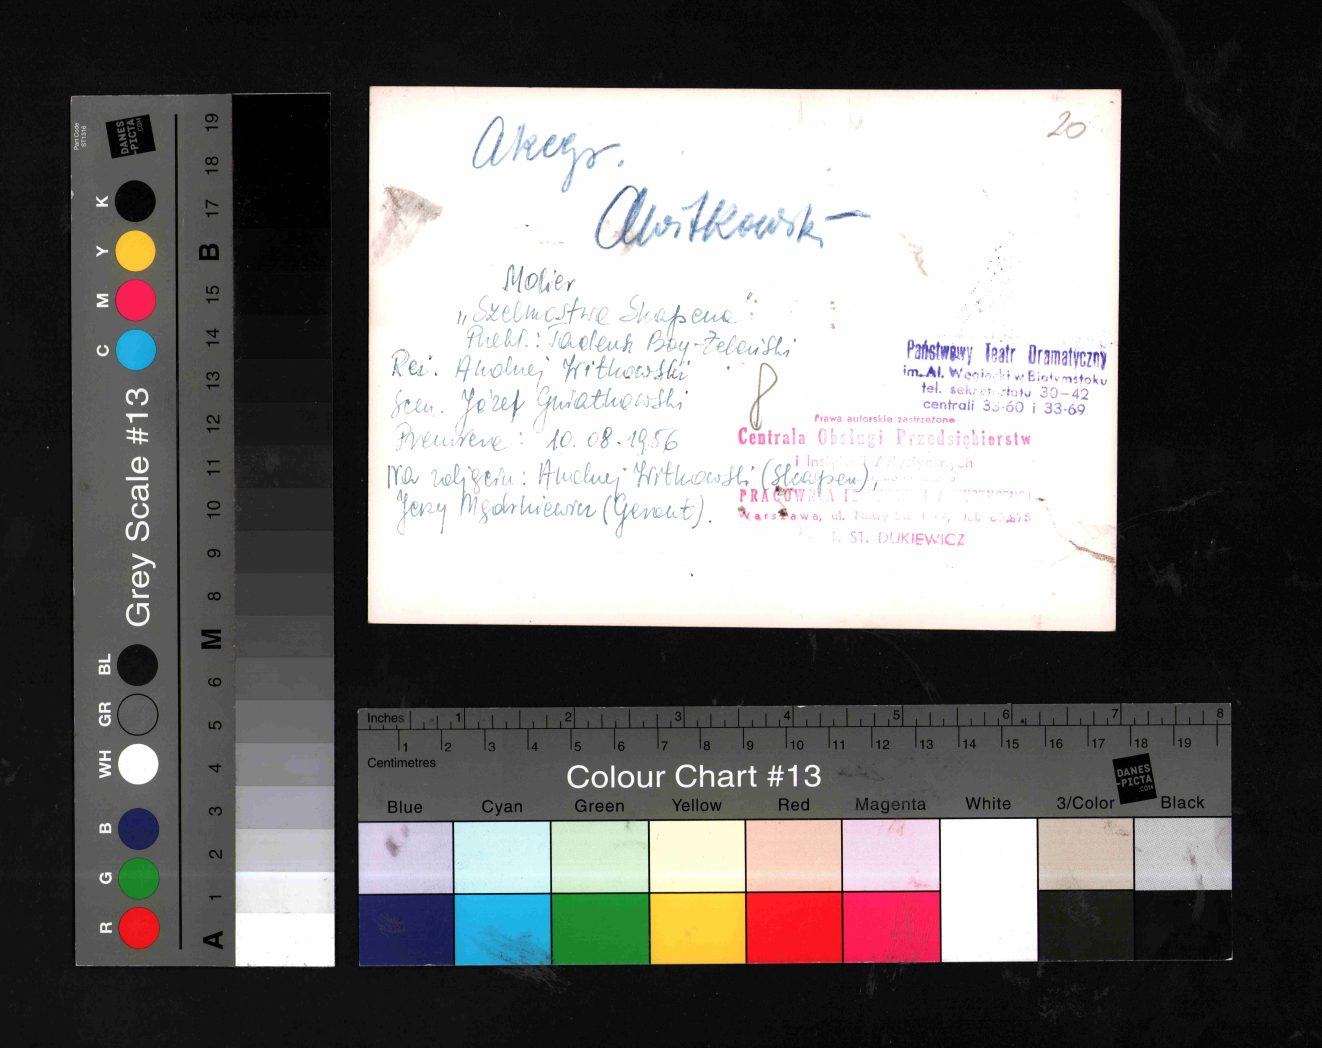 20
Akceps.
AWitkowski
Molier
„Szelmostwa Skapena":
Przekł.: Tadeusz Boy-Żeleński
Reż. Andrzej Witkowski
Scen. Józef Gniatkowski
Premiera: 10.08.1956
Na zdjęciu: Andrzej Witkowski (Skapen),
Jerzy (Geront).
8
Państwowy Teatr Dramatyczny
im. Al. Węgierki w Białymstoku
tel. sekretariatu 30-42
centrali 33-60 i 33-69
Prawa autorskie zastrzeżone
Centrala Obsługi Przedsiębiorstw
i Instytucji Artystycznych
PRACOWNIA
Warszawa, ul. Nowy Świat
ST. DUKIEWICZ
Part Code
ST1316
DANES
-PICTA
.COM
K Y M C
Grey Scale #13
BL GR WH B G R
19 18 17 B 15 14 13 12 11 10 9 8 M 6 5 4 3 2 1 A
Inches 1 2 3 4 5 6 7 8
1 2 3 4 5 6 7 8 9 10 11 12 13 14 15 16 17 18 19
Centimetres
Colour Chart #13
DANES
-PICTA
.COM
Blue Cyan Green Yellow Red Magenta White 3/Color Black